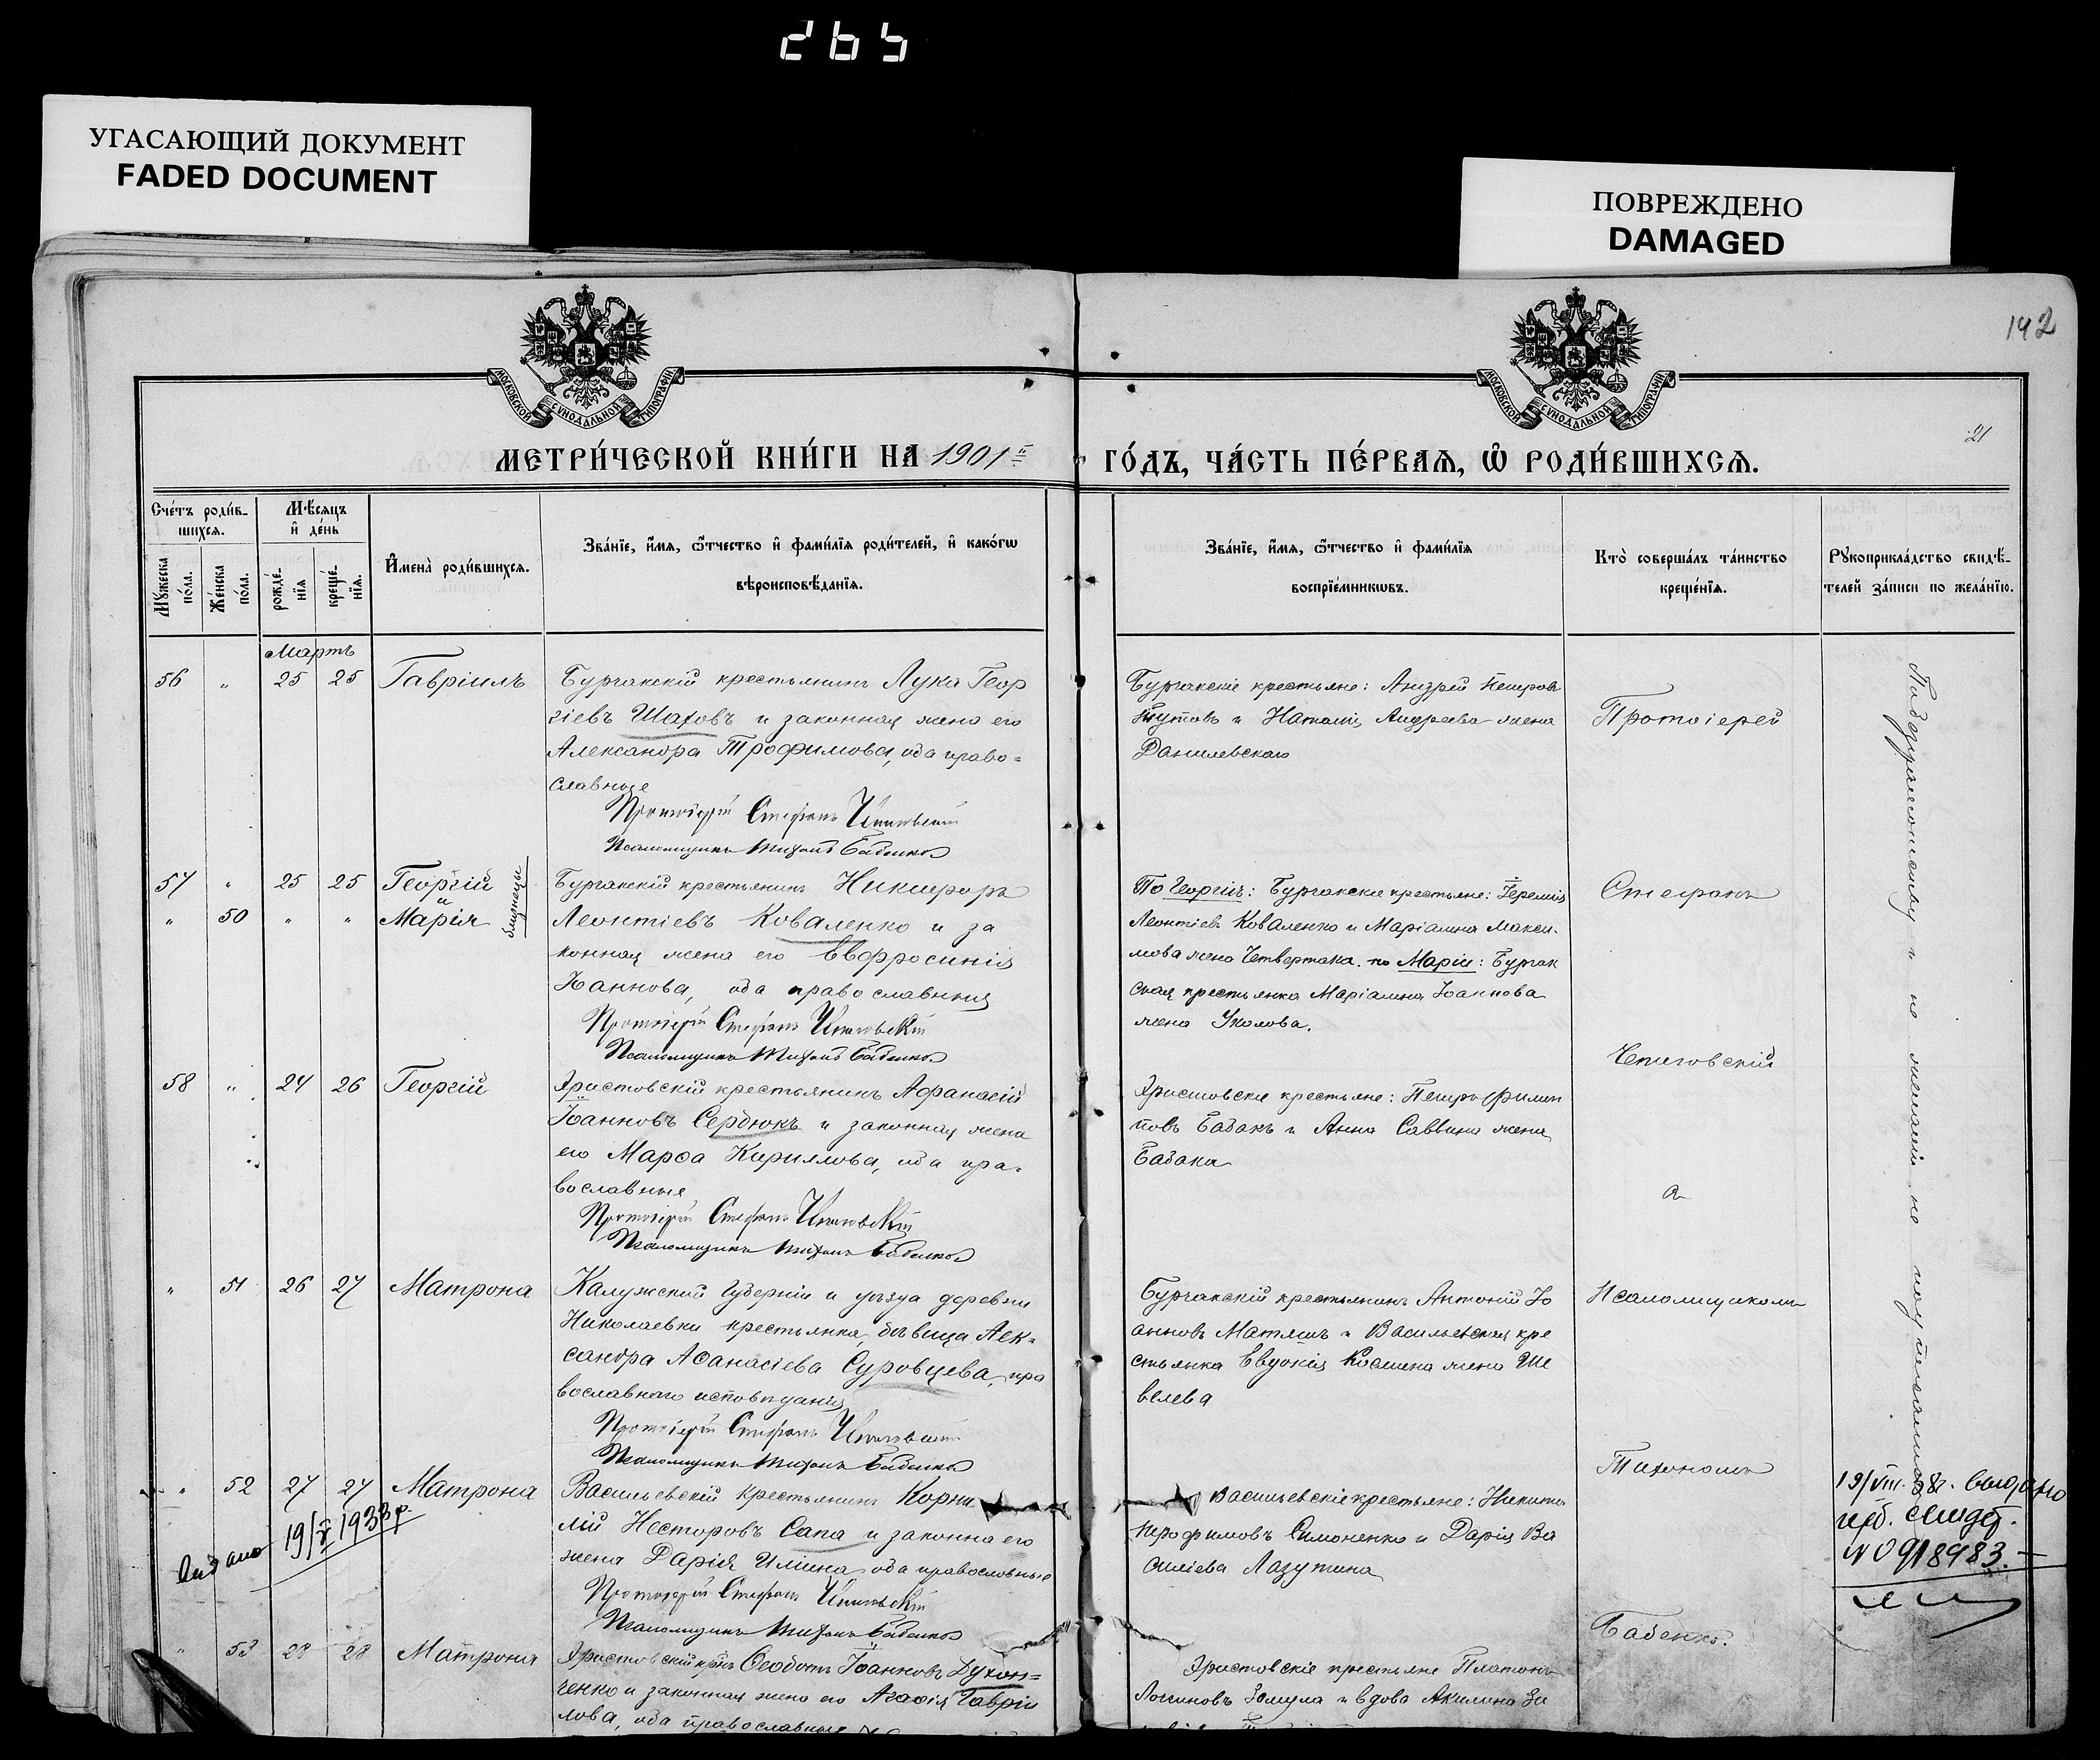 265
УГАСАЮЩИЙ ДОКУМЕНТ
FADED DOCUMENT
ПОВРЕЖДЕНО
DAMAGED
МОСКОВСКОЙ СѴНОДАЛЬНОЙ ТИПОГРАФІИ
МОСКОВСКОЙ СѴНОДАЛЬНОЙ ТИПОГРАФІИ
192
21
МЕТРИ́ЧЕСКОЙ КНИ́ГИ НА 1901й ГО́ДЪ, ЧА́СТЬ ПЕ́РВАѦ, Ѡ РОДИ́ВШИХСѦ.
Сче́тъ роди́в-
шихсѧ.
Мѣ́сяцъ
и҆ де́нь
Мꙋ́жеска
по́ла.
Же́нска
по́ла.
рожде́-
нїѧ
креще́-
нїѧ.
И҆мена̀ роди́вшихсѧ.
Зва́нїе, и҆́мѧ, ѻ҆́тчество и҆ фами́лїѧ роди́телей, и҆ како́гѡ
вѣроисповѣ́данїѧ.
Зва́нїе, и҆́мѧ, ѻ҆́тчество и҆ фами́лїѧ
воспрїе́мникѡвъ.
Кто̀ соверша́лъ та́инство
креще́нїѧ.
Рꙋкоприкла́дство свидѣ́-
телей за́писи по жела́нїю.
Мартъ
56 " 25 25 Гавріилъ
Бургакскій крестьянинъ Лука Геор
гіевъ Шаховъ и законная жена его
Александра Трофимова, оба право=
славные
Протоіерей Стефанъ
Псаломщикъ Тихонъ Бабенко
Бургакскіе крестьяне: Андрей Петровъ
и Наталія Андреева жена
Данилевскаго
Протоіерей
57 " 25 25 Георгій
и
" 50 " " Марія
близнецы
Бургакскій крестьянинъ Никифоръ
Леонтіевъ Коваленко и за
конная жена его Евфросинія
Іоаннова, оба православныя
Протоіерей Стефанъ
Псаломщикъ Тихонъ Бабенко
По Георгію: Бургакские крестьяне: Іеремія
Леонтіевъ Коваленко и Маріамна Макси-
мова жена Четвертака. по Маріи: Бургак
ская крестьянка Маріамна Іоаннова
жена Уколова.
Стефанъ
Чепиговскій
58 " 24 26 Георгій
Христовскій крестьянинъ Афанасій
Іоанновъ Сердюкъ и законная жена
его Марѳа Кириллова, оба пра-
вославные
Протоіерей Стефанъ
Псаломщикъ Тихонъ Бабенко
Христовские крестьяне: Петръ Филип
повъ Бабакъ и Анна Саввина жена
Бабака
а
" 51 26 27 Матрона
Калужской Губерніи и уѣзда деревни
Николаевки крестьянка, дѣвица Алек=
сандра Аѳанасіева Суровцева, пра
вославнаго исповѣданія
Протоіерей Стефанъ
Псаломщикъ Тихонъ Бабенко
Бургакскій крестьянинъ Антоній Іо
анновъ Матяшъ и Васильевская кре
стьянка Евдокія Космина жена Ше
велева
Псаломщикомъ
Тихономъ
" 52 27 27 Матрона
Васильевскій крестьянинъ Корни
лій Несторовъ Сапа и законна его
жена Дарія Иліина, оба православные
Протоіерей Стефанъ
Псаломщикъ Тихонъ Бабенко
Васильевскіе крестьяне: Никита
Трофимовъ Симоненко и Дарія Ва
силіева Лазутина
19/VIII. выдано
свидет.
N 0918983.
Видано 19/V 1933р.
Бабенко.
" 53 28 28 Матрона
Христовскій крнъ Ѳеодотъ Іоанновъ Духон=
ченко и законная жена его Агаѳія Гавріи
лова, оба православные
Христовскіе крестьяне Платонъ
Логиновъ и вдова Акилина